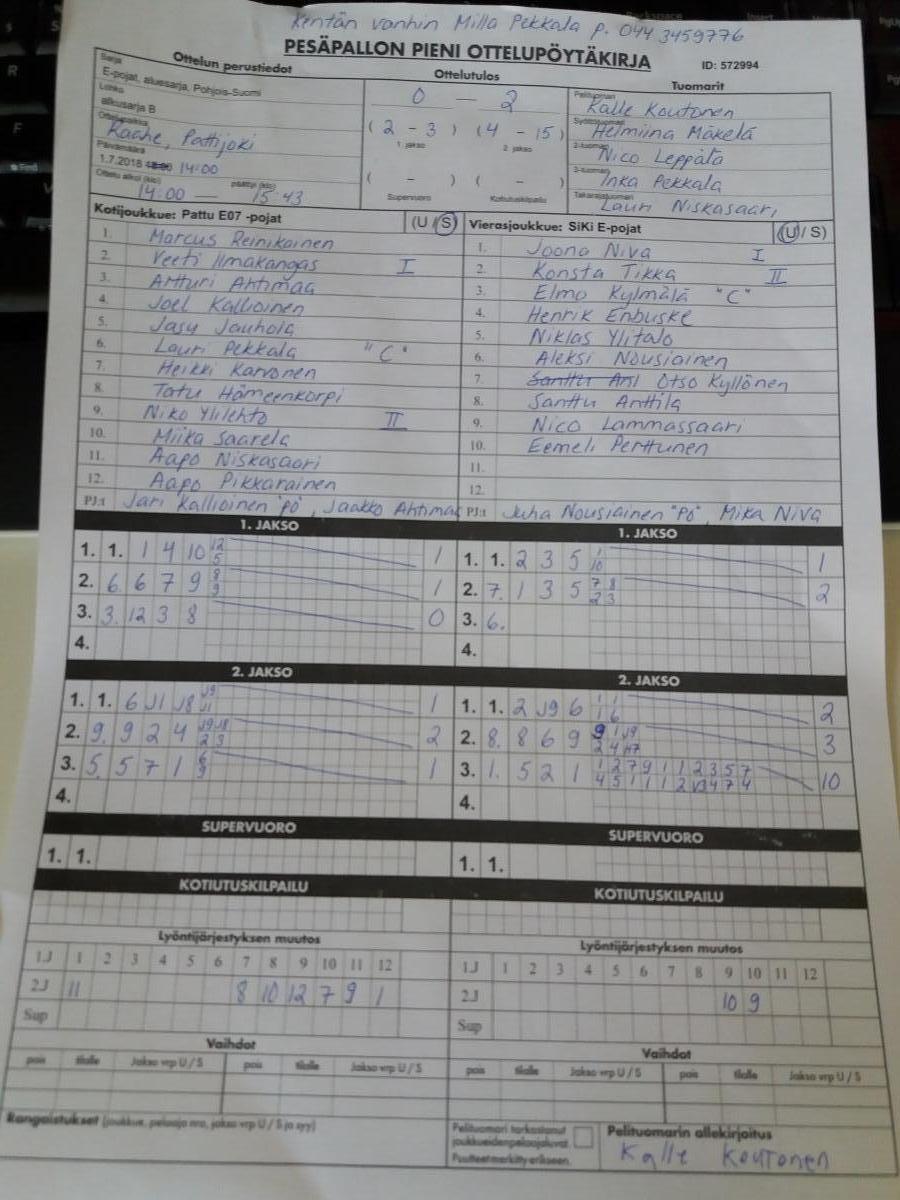 Kentän vanhin Milla Pekkala p. 044 3459776
PESÄPALLON PIENI OTTELUPÖYTÄKIRJA
ID: 572994
Ottelun perustiedot
Sarja
E-pojat, aluesarja, Pohjois-Suomi
Lohko
alkusarja B
Ottelupaikka
Raahe, Pattijoki
Päivämäärä
1.7.2018 14:00
Ottelu alkoi (klo) päättyi (klo)
14:00 — 15:43
Ottelutulos
0 — 2
( 2 - 3 ) ( 4 - 15 )
1. jakso 2. jakso
( - ) ( - )
Supervuoro Kotiutuskilpailu
Tuomarit
Pelituomari
Kalle Koutonen
Syöttötuomari
Helmiina Mäkelä
2-tuomari
Nico Leppälä
3-tuomari
Inka Pekkala
Takarajatuomari
Lauri Niskasaari
Kotijoukkue: Pattu E07 -pojat (U / S)
1. Marcus Reinikainen
2. Veeti Ilmakangas I
3. Artturi Ahtimaa
4. Joel Kallioinen
5. Jasu Jauhola
6. Lauri Pekkala "C"
7. Heikki Karvonen
8. Tatu Hämeenkorpi
9. Niko Ylilehto II
10. Miika Saarela
11. Aapo Niskasaari
12. Aapo Pikkarainen
PJ:t Jari Kallioinen "PÖ", Jaakko Ahtimaa
Vierasjoukkue: SiKi E-pojat (U / S)
1. Joona Niva I
2. Konsta Tikka II
3. Elmo Kylmälä "C"
4. Henrik Enbuske
5. Niklas Ylitalo
6. Aleksi Nousiainen
7. Otso Kyllönen
8. Santtu Anttila
9. Nico Lammassaari
10. Eemeli Perttunen
11.
12.
PJ:t Juha Nousiainen "PÖ", Mika Niva
1. JAKSO
1. 1. 1 4 10 12 1
5
2. 6. 6 7 9 8 1
9
3. 3. 12 3 8 0
4.
1. JAKSO
1. 1. 2 3 5 1 1
10
2. 7. 1 3 5 7 8 2
2 3
3. 6.
4.
2. JAKSO
1. 1. 6 J1 J8 J9 1
J1
2. 9. 9 2 4 J9 J8 2
2 3
3. 5. 5 7 1 6 1
9
4.
2. JAKSO
1. 1. 2 J9 6 1 1 2
1 6
2. 8. 8 6 9 9 1 J9 3
2 4
3. 1. 5 2 1 1 2 7 9 1 1 2 3 5 7 10
4 5 1 1 1 2 4 7 4
4.
SUPERVUORO
1. 1.
SUPERVUORO
1. 1.
KOTIUTUSKILPAILU
KOTIUTUSKILPAILU
Lyöntijärjestyksen muutos
1J 1 2 3 4 5 6 7 8 9 10 11 12
2J 11 8 10 12 7 9 1
Sup
Lyöntijärjestyksen muutos
1J 1 2 3 4 5 6 7 8 9 10 11 12
2J 10 9
Sup
Vaihdot
pois tilalle Jakso vrp U / S pois tilalle Jakso vrp U / S
Vaihdot
pois tilalle Jakso vrp U / S pois tilalle Jakso vrp U / S
Rangaistukset (joukkue, pelaaja nro, jakso vrp U / S ja syy)
Pelituomari tarkastanut
joukkueiden pelaajaluvat.
Puutteet merkitty erikseen.
Pelituomarin allekirjoitus
Kalle Koutonen